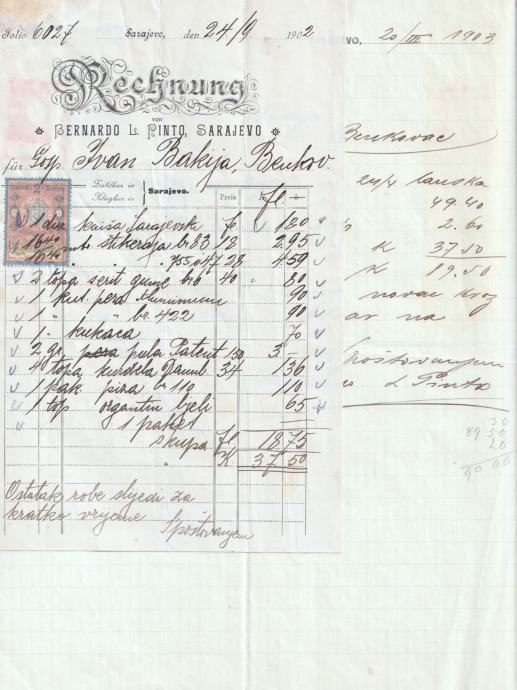 Folio 6027 Sarajevo, den 24/9 1902
Rechnung
von
BERNARDO L. PINTO, SARAJEVO
für Gosp Ivan Bakija, Benkov.
Zahlbar in
Klagbar in
Sarajevo.
Preis fl.
1 duz kaiša Sarajevski f. 1 80
1640 mt. br 83 18 2.95
1640 " " 755 a 47 28 4.59
2 topa serit gume br 6 40 " 80
1 kut. pera Aluminium 90
1 " " br. 422 90
1 " kukaca 70
2 gr. pula Patent 150 3.–
4 topa kurdela 34 1 36
1 pak. br 110 1 10
1 top organtin bjeli 65
1 paket
skupa fl 18.75
K 37.50
Ostatak robe sljedi za
kratko vrijeme
Spoštovanjem
vo, 20/III 1903
Benkovac
lanjska
49.40
2.60
K 37 50
K 19.50
novac kroz
na
poštovanjem
L Pinto
30
89 50
20
90 00